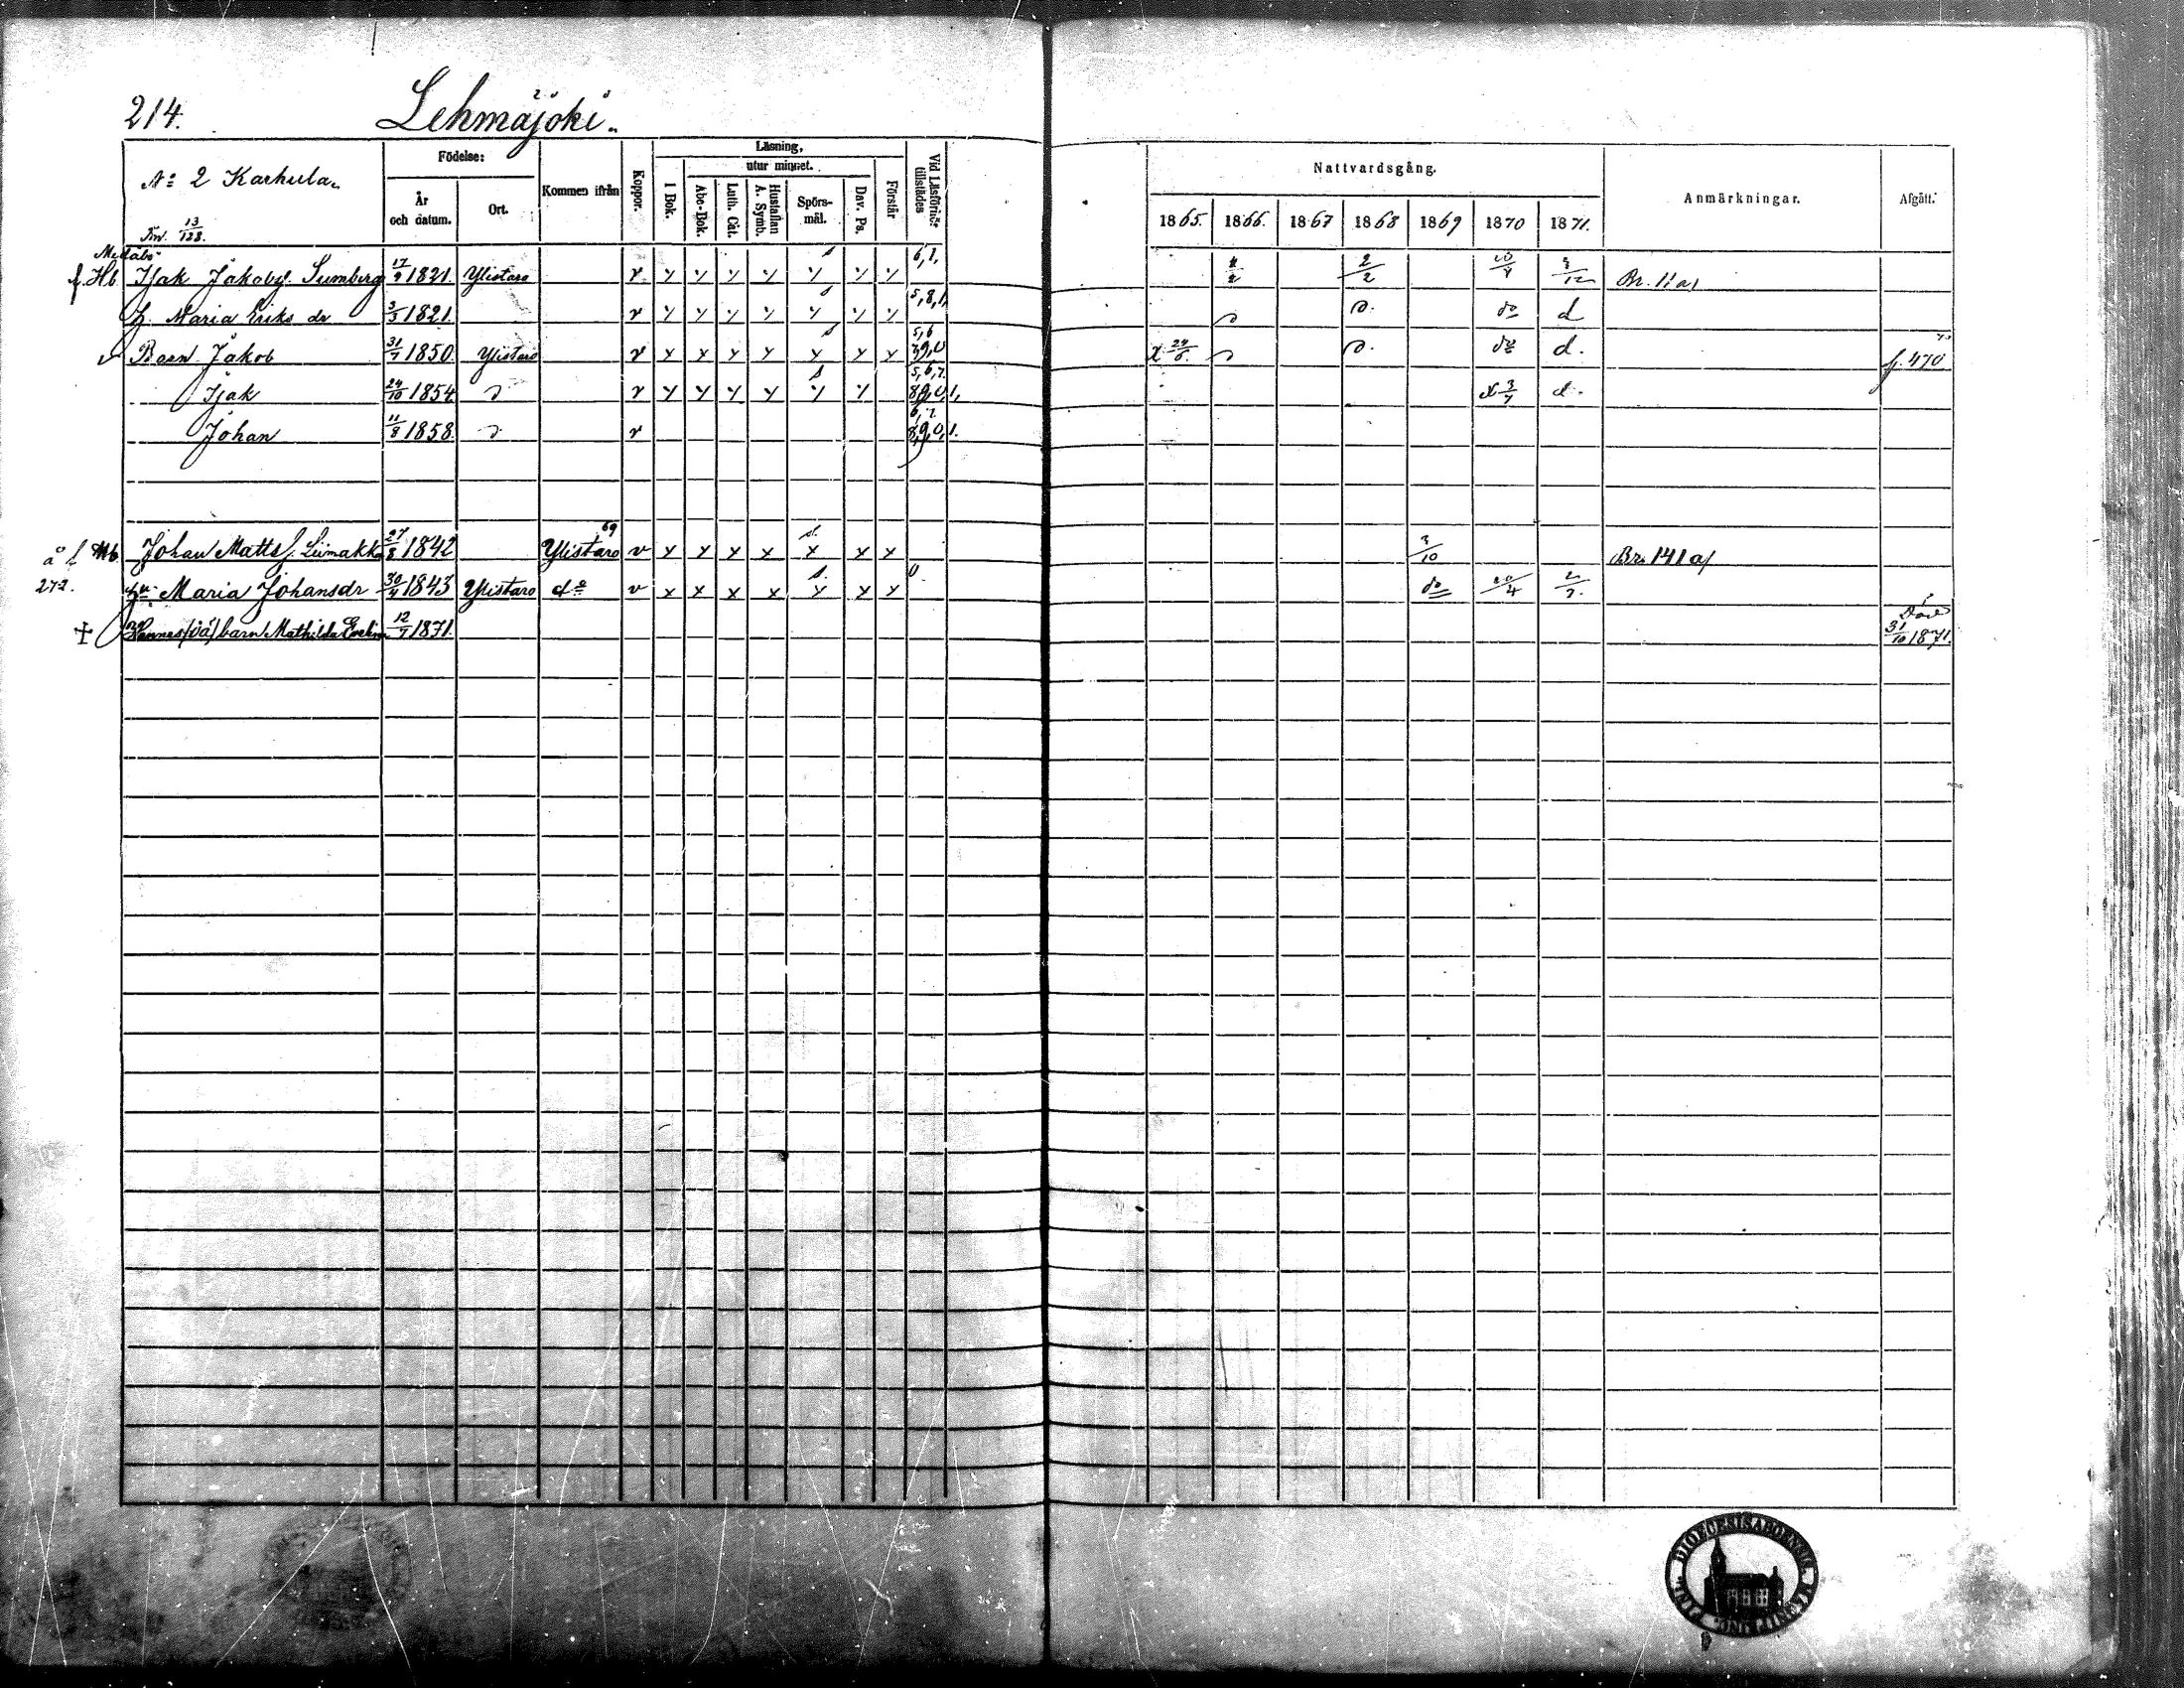 214.
Lehmäjoki.
N:o 2 Karkula.
13/123.
Födelse:
År och datum.
Ort.
Kommen ifrån
Koppor.
Läsning,
utur minnet.
I Bok.
Abc-Bok.
Luth. Cat.
Hustaflan A. Symb.
Spörsmål.
Dav. Ps.
Förstår
Vid Läsförhör tillstädes
Nattvardsgång.
1865. 1866. 1867 1868 1869 1870 1871.
Anmärkningar.
Afgått.
Hb. Isak Jakobss. Sumberg 17/9 1821. Ylistaro v 6,1, 2/2 Br. 11 a/
h. Maria Eriks dr 3/3 1821. v 5,8,1, do d
Barn Jakob 31/7 1850. Ylistaro v x x x x x x x 5,6 x 24/6. do d. f. 470
Isak 24/10 1854 v 5,6,7. 8,9,0,1, 3/7 d.
Johan 11/8 1858. v 8,9,0,1.
Johan Matts s. Liimakka 27/8 1842 69 Ylistaro v x x x x x x x 3/10 Br. 141 a/
272. hu Maria Johansdr 30/4 1843 Ylistaro do v x x x x x x x do 20/4 2/7.
† Hennes /oä/ barn Mathilda Evelina 12/7 1871. Död 31/10 1871.